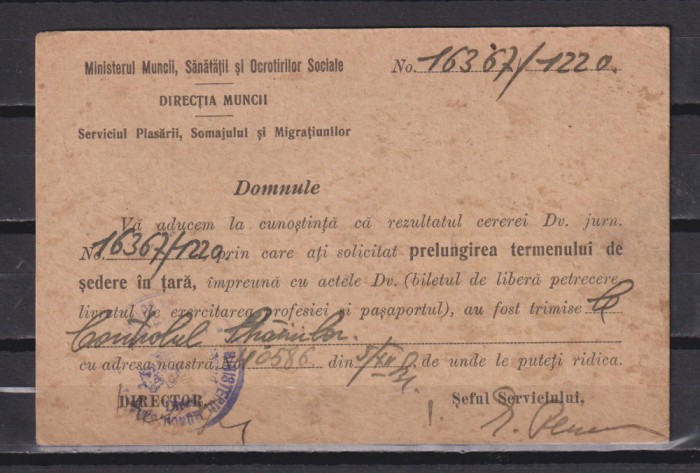 Ministerul Muncii, Sănătății și Ocrotirilor Sociale
No. 16367/1220.
DIRECȚIA MUNCII
Serviciul Plasării, Somajului și Migrațiunilor
Domnule
Vă aducem la cunoștință că rezultatul cererei Dv. jurn.
No. 16367/1220 prin care ați solicitat prelungirea termenului de
ședere în țară, împreună cu actele Dv. (biletul de liberă petrecere,
livretul de exercitarea profesiei și pașaportul), au fost trimise la
Controlul Străinilor.
cu adresa noastră No. 40586 din 5/XII de unde le puteți ridica.
DIRECTOR,
Șeful Serviciului,
MINISTERUL